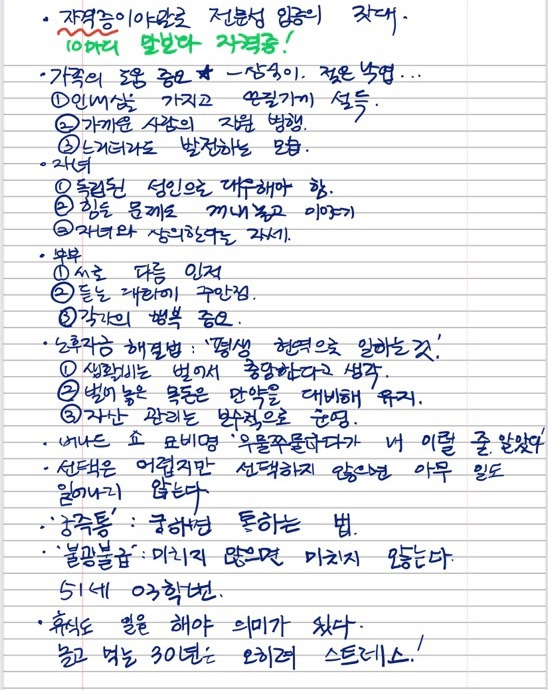 · 자격증이야말로 전문성 입증의 잣대.
10마디 말보다 자격증!
· 가족의 도움 중요 ★ - 삼식이. 젖은 낙엽...
① 인내심을 가지고 끈질기게 설득.
② 가까운 사람의 지원 병행.
③ 느리더라도 발전하는 모습.
· 자녀
① 독립된 성인으로 대우해야 함.
② 힘든 문제도 꺼내놓고 이야기
③ 자녀와 상의한다는 자세.
· 부부
① 서로 다름 인정
② 듣는 대화에 주안점.
③ 각자의 행복 중요.
· 노후자금 해결법 : '평생 현역으로 일하는 것!'
① 생활비는 벌어서 충당한다고 생각.
② 벌어놓은 목돈은 만약을 대비해 유지.
③ 자산 관리는 보수적으로 운영.
· 버나드 쇼 묘비명 '우물쭈물하다가 내 이럴 줄 알았다'
· 선택은 어렵지만 선택하지 않으면 아무 일도
일어나지 않는다
· '궁즉통' : 궁하면 통하는 법.
· '불광불급' : 미치지 않으면 미치지 않는다.
51세 03학번.
· 휴식도 일을 해야 의미가 있다.
놀고 먹는 30년은 오히려 스트레스!